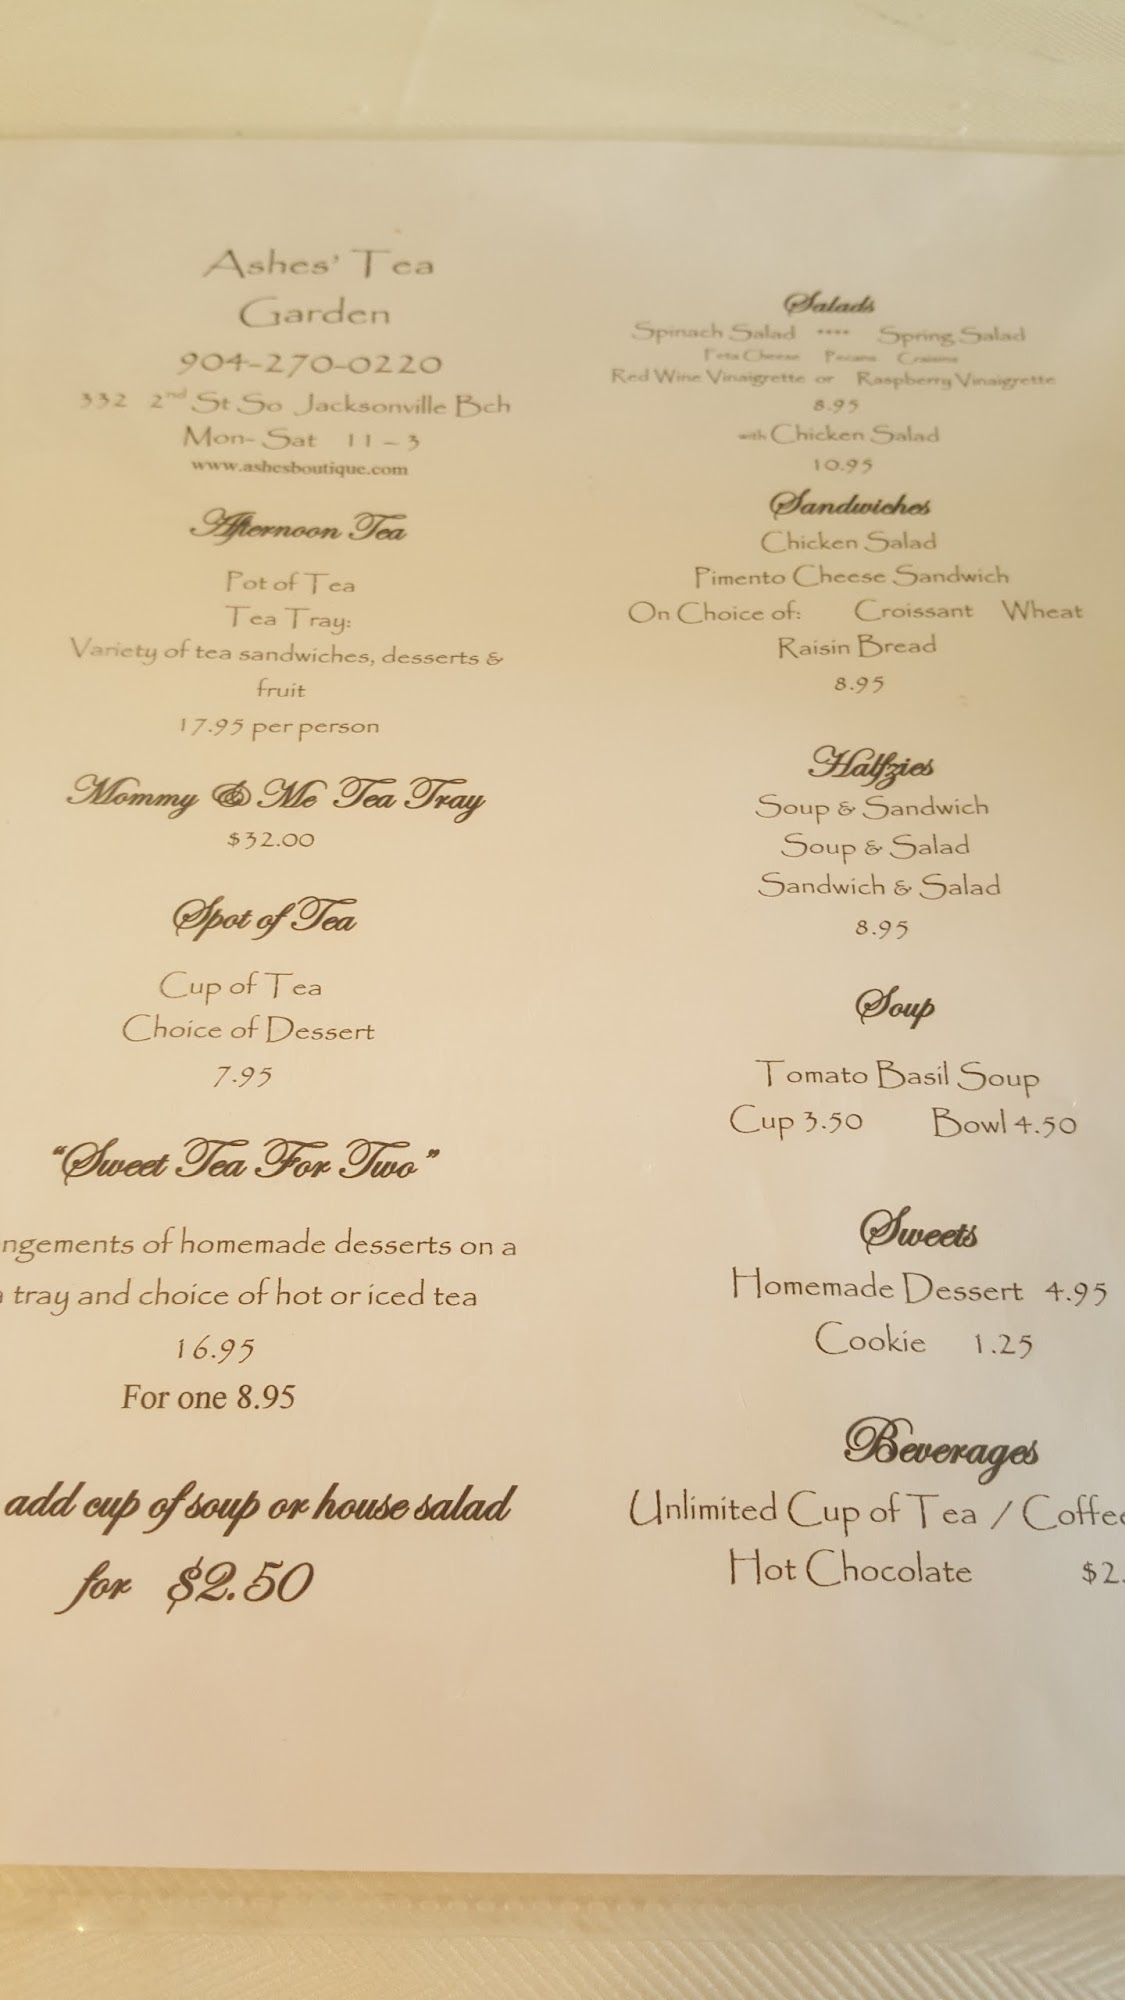 Ashes' Tea
Garden
904-270-0220
332 2nd St So Jacksonville Bch
Mon- Sat 11 – 3
www.ashesboutique.com
Afternoon Tea
Pot of Tea
Tea Tray:
Variety of tea sandwiches, desserts &
fruit
17.95 per person
Mommy & Me Tea Tray
$32.00
Spot of Tea
Cup of Tea
Choice of Dessert
7.95
"Sweet Tea For Two"
ngements of homemade desserts on a
tray and choice of hot or iced tea
16.95
For one 8.95
add cup of soup or house salad
for $2.50
Salads
Spinach Salad **** Spring Salad
Feta Cheese Pecans Craisins
Red Wine Vinaigrette or Raspberry Vinaigrette
8.95
with Chicken Salad
10.95
Sandwiches
Chicken Salad
Pimento Cheese Sandwich
On Choice of: Croissant Wheat
Raisin Bread
8.95
Halfzies
Soup & Sandwich
Soup & Salad
Sandwich & Salad
8.95
Soup
Tomato Basil Soup
Cup 3.50 Bowl 4.50
Sweets
Homemade Dessert 4.95
Cookie 1.25
Beverages
Unlimited Cup of Tea / Coffee
Hot Chocolate $2.